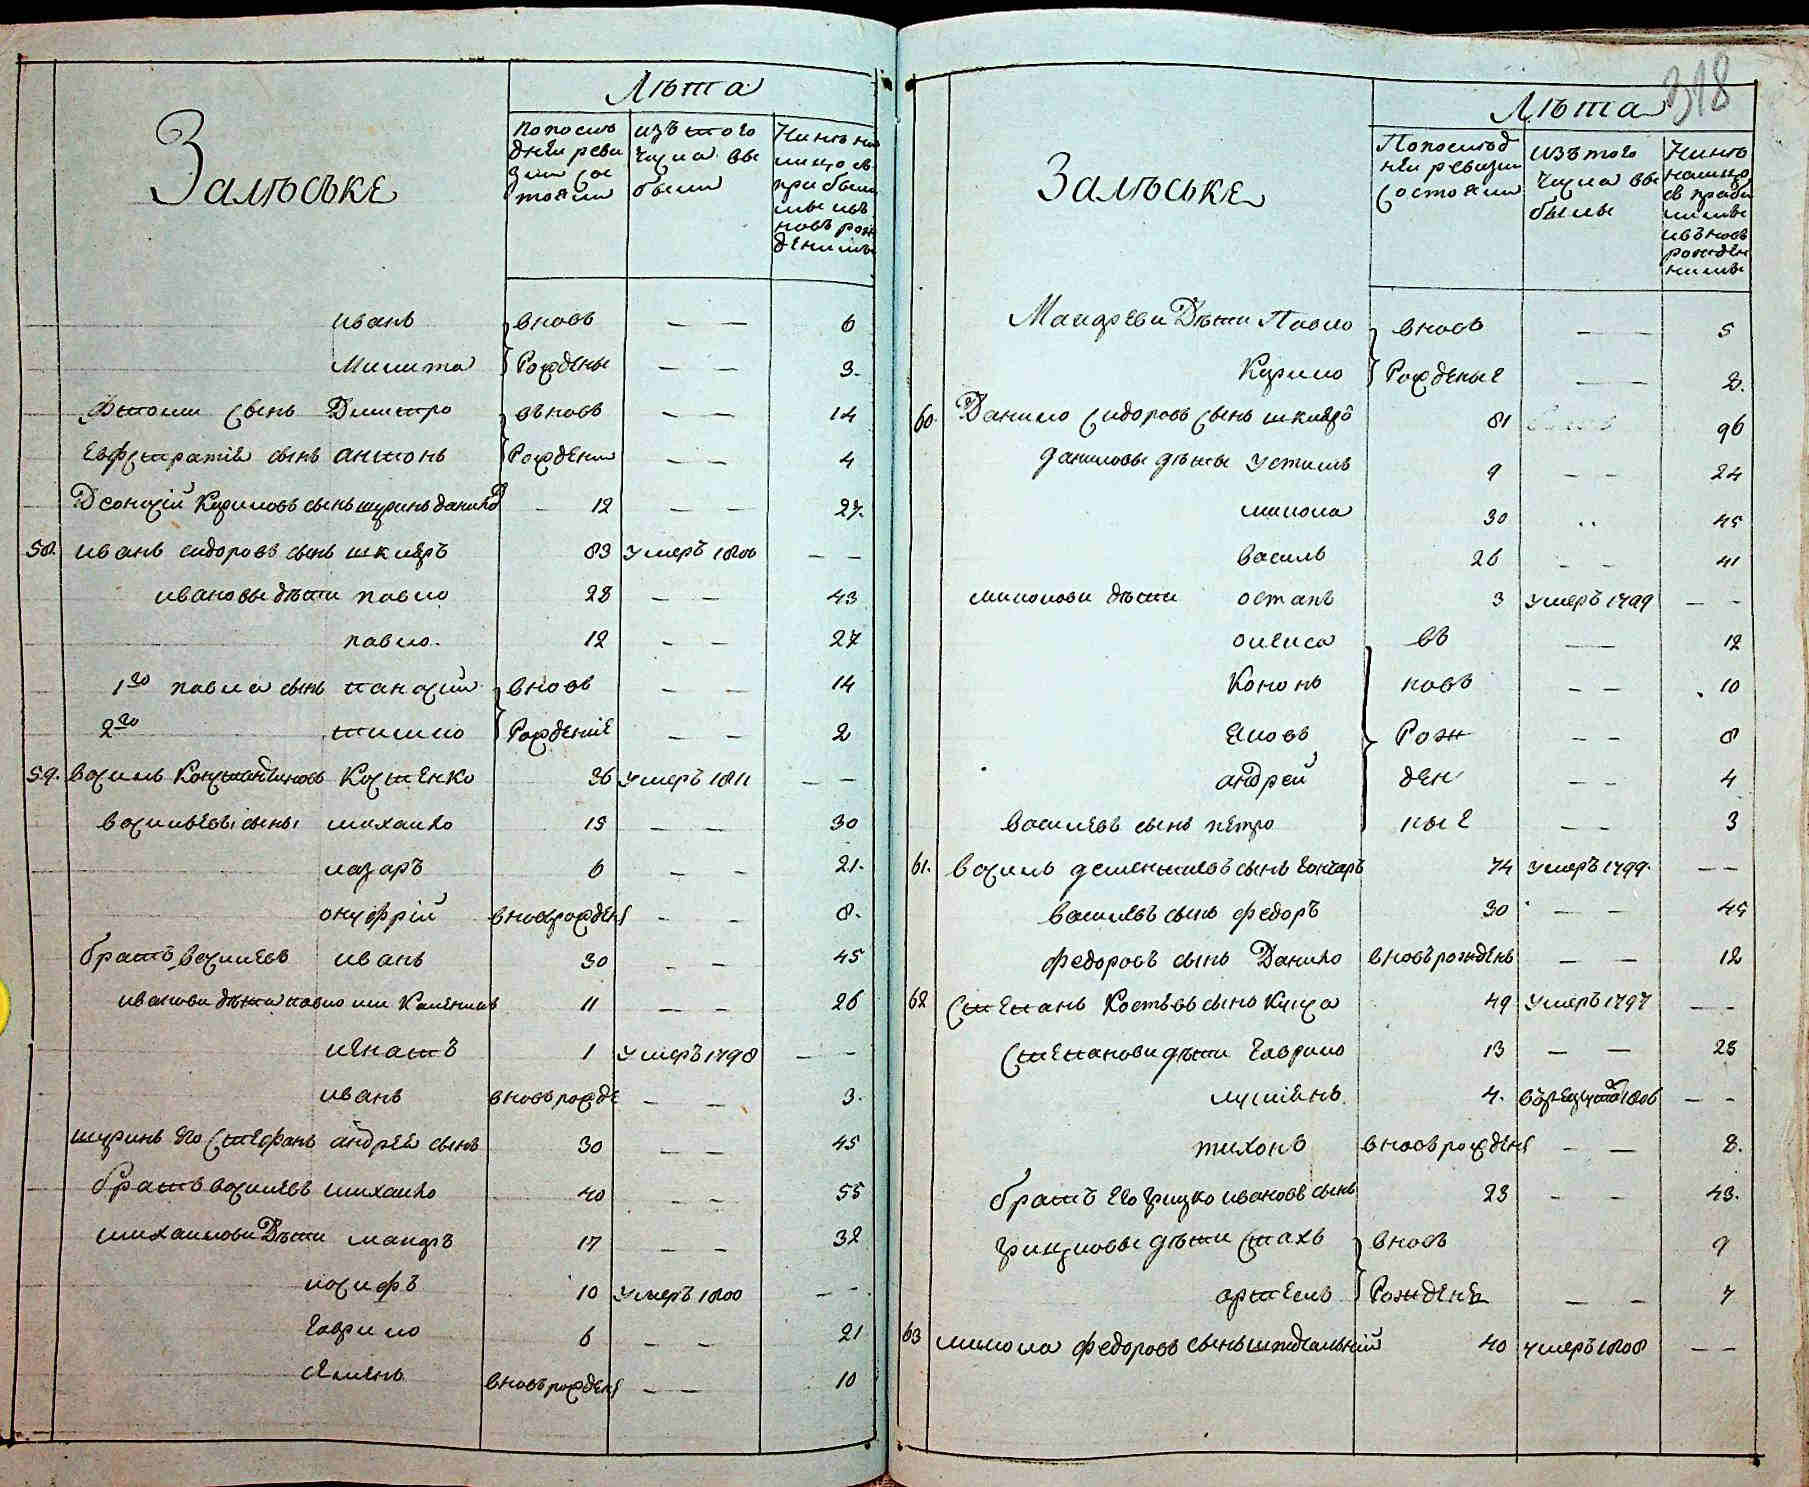 Лѣта
Залѣське
Попослѣ
дней реви
зии сос
тояли
изъ того
числа вы
были
Нинѣ на
лицо съ
прибыли
ми ивъ
новъ рож
денними
иванъ вновь — — 6
Микита Рожденые — — 3.
сынъ Дмитро вьновь — — 14
Евфстратіевъ сынъ антонъ Рождени — — 4
Кириловъ сынъ шуринъ данила — 12 — — 27.
58. иванъ сидоровъ сынъ шкляръ 83 умеръ 1806 — —
ивановы дѣти павло 28 — — 43
павло. 12 — — 27
1го павла сынъ панасий вновь — — 14
2го тимко Рождение — — 2
59. василь Констандиновъ Костенко 36 умеръ 1811 — —
васильеви сыны михайло 15 — — 30
лазаръ 6 — — 21.
онуфрій вновьрожден — — 8.
братъ василевъ иванъ 30 — — 45
иванови дѣти павло или 11 — — 26
игнатъ 1 умеръ 1798 — —
иванъ вновьрожде — — 3.
шуринъ его Стефанъ андреев сынъ 30 — — 45
братъ василевъ михайло 40 — — 55
михайлови Дѣти мандръ 17 — — 32
иосифъ 10 умеръ 1800 — —
гаврило 6 — — 21
семенъ вновьрожден — — 10
318
Лѣта
Залѣське
Попослѣд
ней ревизии
состояли
изъ того
числа вы
были
Нинѣ
налицо
съ приби
лими
ивъновъ
рожден
ними
Мандреви Дѣти Павло вновь — — 5
Кирило Рожденые — — 2.
60. Данило Сидоровъ Сынъ шкляръ 81 96
даниловы дѣты Устимъ 9 — — 24
микола 30 .. 45
василь 26 — — 41
миколови дѣти остапъ 3 умеръ 1799 — —
олекса въ — — 12
Кононъ новъ — — 10
Яковъ Рож — — 8
андрей ден — — 4
василевъ сынъ петро ные — — 3
61. василь дементиевъ сынъ гончаръ 74 умеръ 1799. — —
василевъ сынъ федоръ 30 — — 45
федоровъ сынъ Данило вновьрожденъ — — 12
62 Степанъ Костевъ сынъ Куца 49 умеръ 1797 — —
Степанови дѣти гаврило 13 — — 28
лукіянъ 4. въ рекруты 1806 — —
тихонъ вновьрожден — — 8.
братъ его грицко ивановъ сынъ 28 — — 43.
грицковы дѣти Стахъ вновь 9
артемъ Рожденъ — — 7
63 микола федоровъ сынъ 40 умеръ 1808 — —